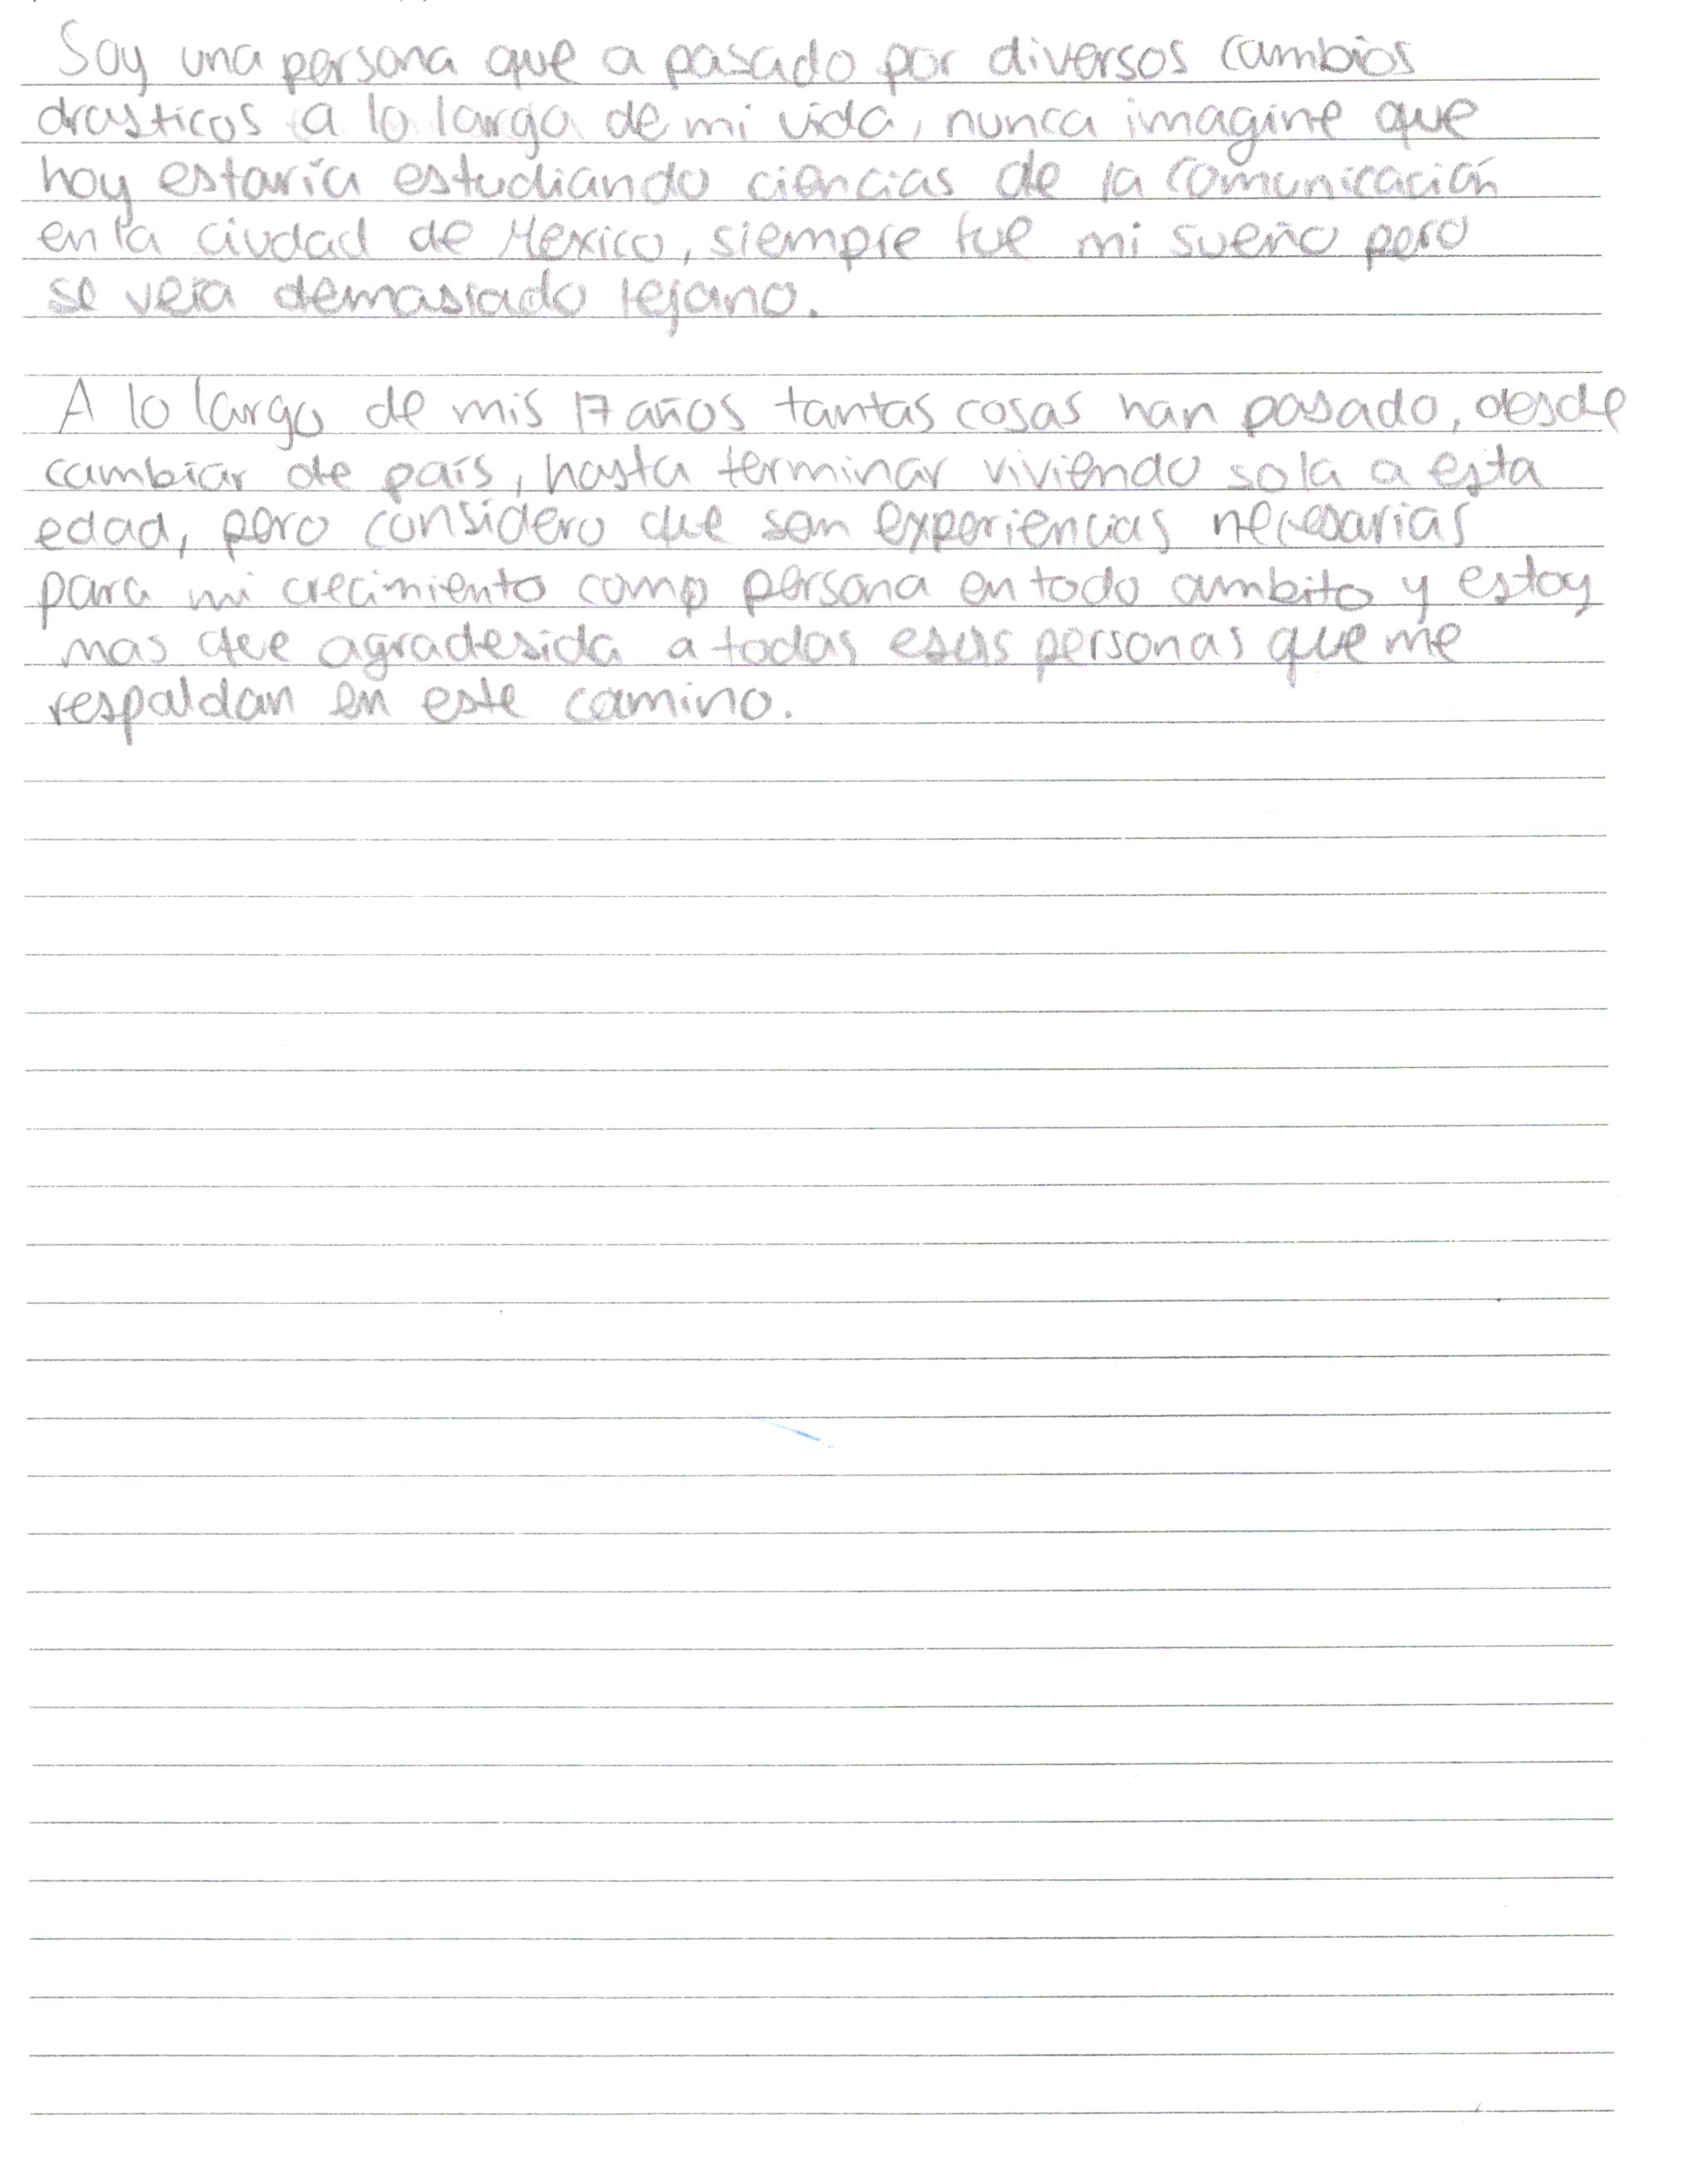 Soy una persona que a pasado por diversos cambios
drasticos a lo largo de mi vida, nunca imagine que
hoy estaría estudiando ciencias de la comunicación
en la ciudad de Mexico, siempre fue mi sueño pero
se veía demasiado lejano.
A lo largo de mis 17 años tantas cosas han pasado, desde
cambiar de país, hasta terminar viviendo sola a esta
edad, pero considero que son experiencias necesarias
para mi crecimiento como persona en todo ambito y estoy
mas que agradesida a todas esas personas que me
respaldan en este camino.